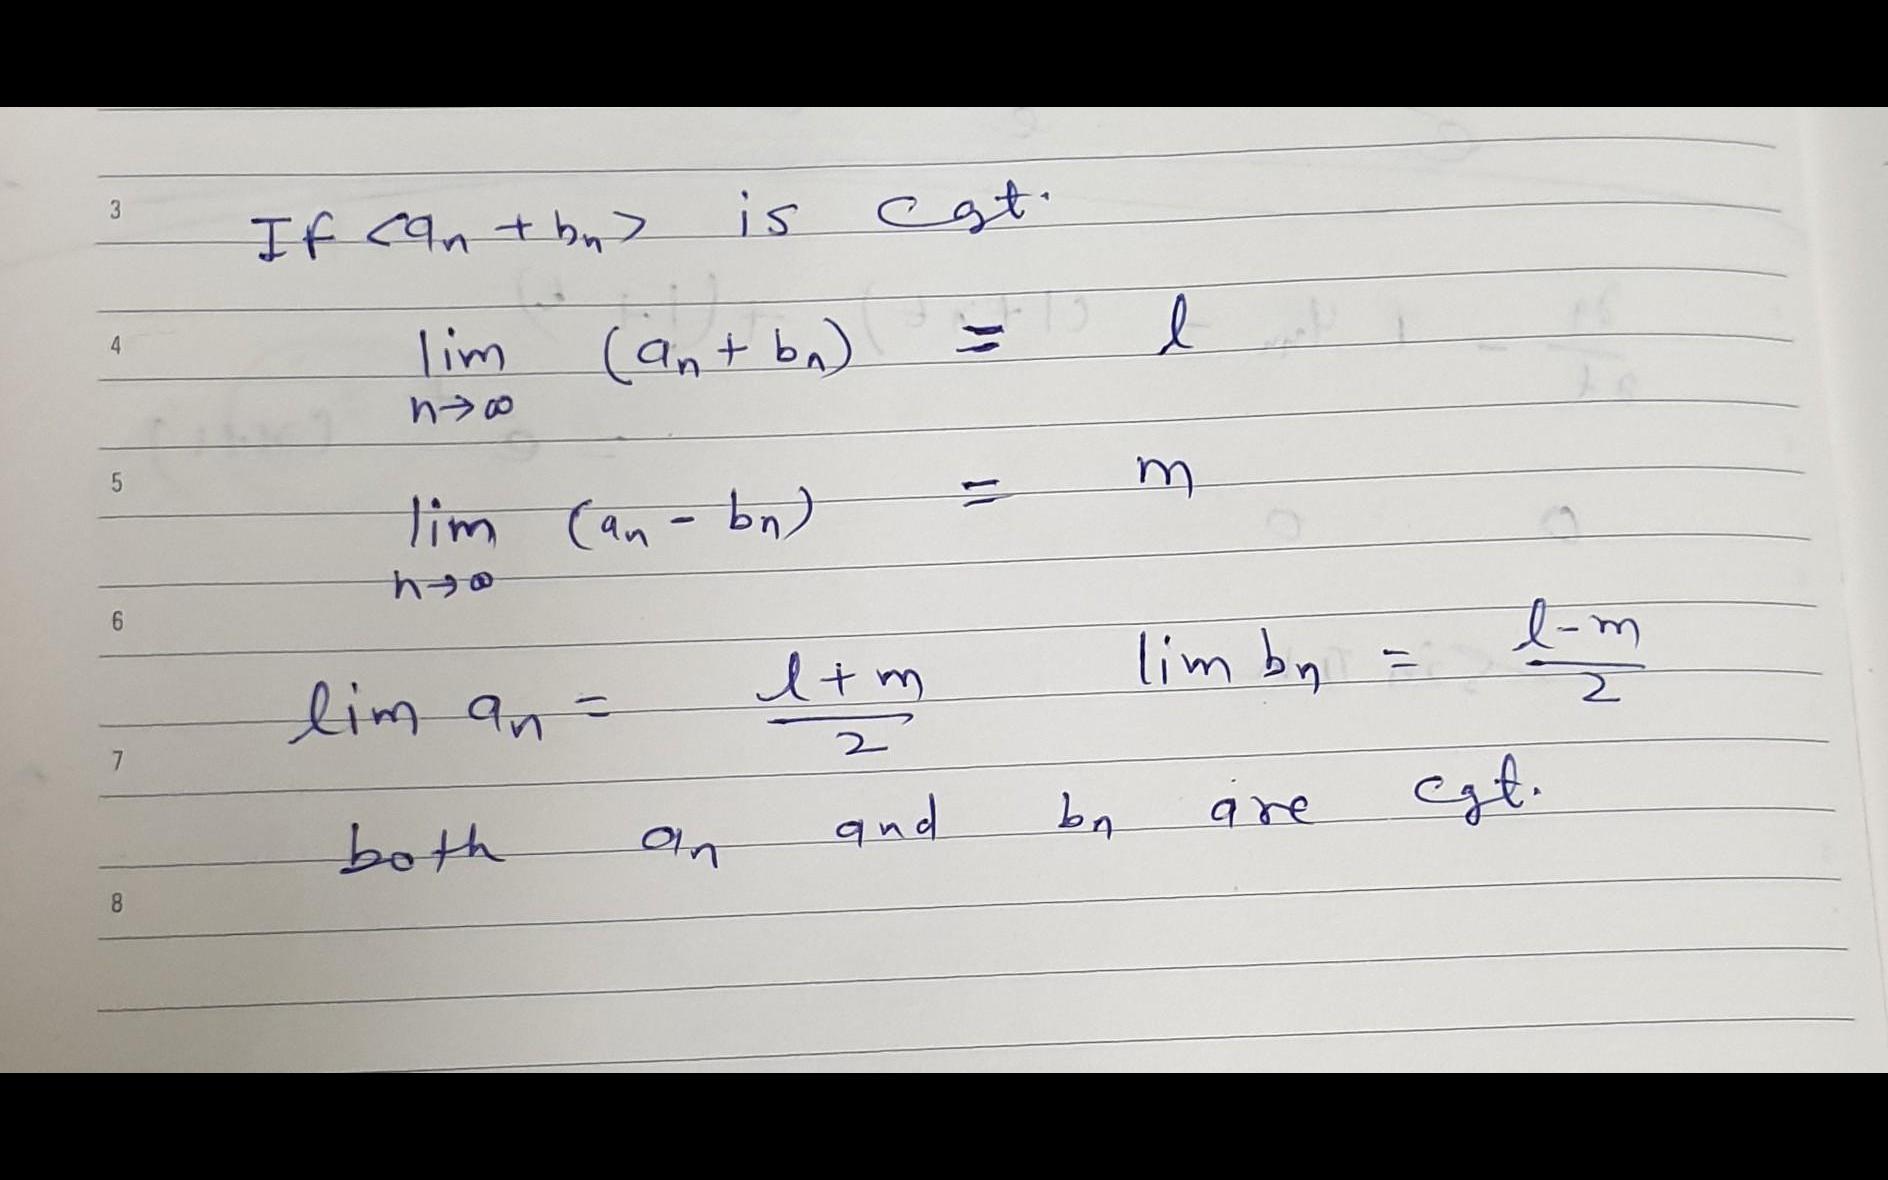 3
If <an + bn> is cgt.
4
lim (an + bn) = l
n→∞
5
lim (an - bn) = m
n→∞
6
lim an = l+m/2 lim bn = l-m/2
7
both an and bn are cgt.
8